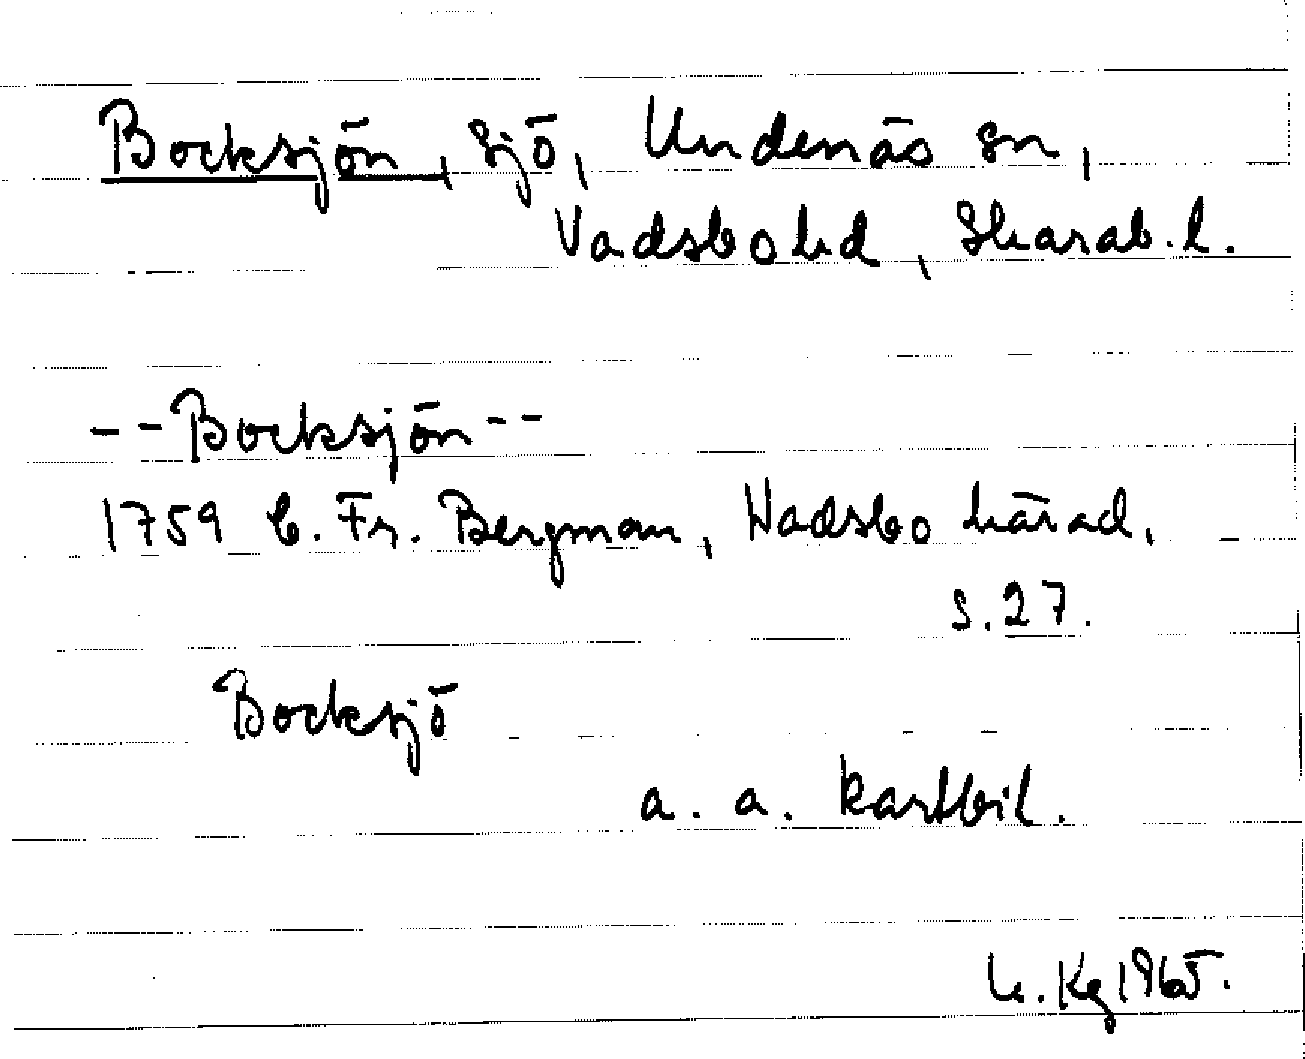 Bocksjön, sjö, Undenäs sn,
Vadsbo hd, Skarab. l.
-- Bocksjön --
1759 C. Fr. Bergman, Wadsbo härad,
s. 27.
Bocksjö
a. a. kartbil.
Kg 1965.